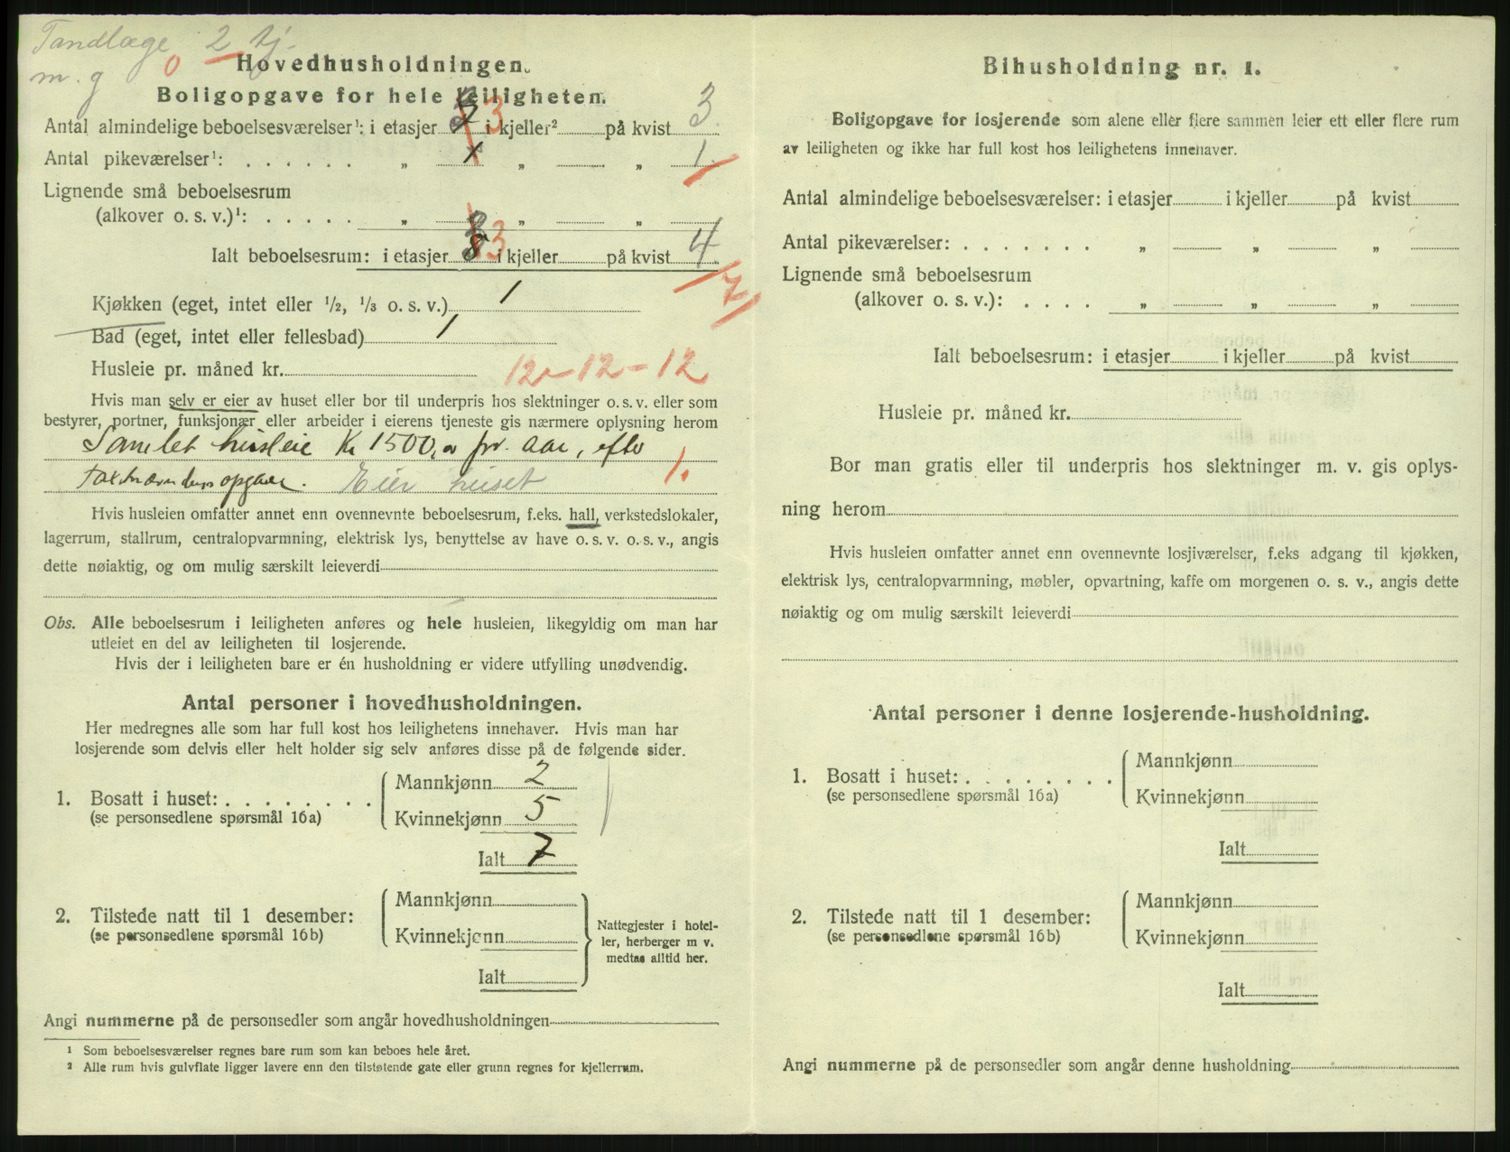 Tandlæge 2 tj.
m. g 0
Hovedhusholdningen.
Boligopgave for hele leiligheten.
Antal almindelige beboelsesværelser¹: i etasjer 7 3 i kjeller² på kvist 3
Antal pikeværelser¹: . . . . . . „ 1 „ „ 1
Lignende små beboelsesrum
(alkover o. s. v.)¹: . . . . . „ „ „
Ialt beboelsesrum: i etasjer 8 3 i kjeller på kvist 4
7
Kjøkken (eget, intet eller 1/2, 1/3 o. s. v.) 1
Bad (eget, intet eller fellesbad) 1
Husleie pr. måned kr. 12-12-12
Hvis man selv er eier av huset eller bor til underpris hos slektninger o. s. v. eller som
bestyrer, portner, funksjonær eller arbeider i eierens tjeneste gis nærmere oplysning herom
Samlet husleie Kr 1500,- pr. aar, efter
opgave. Eier huset 1.
Hvis husleien omfatter annet enn ovennevnte beboelsesrum, f.eks. hall, verkstedslokaler,
lagerrum, stallrum, centralopvarmning, elektrisk lys, benyttelse av have o. s. v. o. s. v., angis
dette nøiaktig, og om mulig særskilt leieverdi
Obs. Alle beboelsesrum i leiligheten anføres og hele husleien, likegyldig om man har
utleiet en del av leiligheten til losjerende.
Hvis der i leiligheten bare er én husholdning er videre utfylling unødvendig.
Antal personer i hovedhusholdningen.
Her medregnes alle som har full kost hos leilighetens innehaver. Hvis man har
losjerende som delvis eller helt holder sig selv anføres disse på de følgende sider.
Mannkjønn 2
1. Bosatt i huset: . . . . . . . .
(se personsedlene spørsmål 16a)
Kvinnekjønn 5
Ialt 7
Mannkjønn
2. Tilstede natt til 1 desember:
(se personsedlene spørsmål 16b)
Kvinnekjønn
Ialt
Nattegjester i hotel-
ler, herberger m v.
medtas alltid her.
Angi nummerne på de personsedler som angår hovedhusholdningen
¹ Som beboelsesværelser regnes bare rum som kan beboes hele året.
² Alle rum hvis gulvflate ligger lavere enn den tilstøtende gate eller grunn regnes for kjellerrum.
Bihusholdning nr. 1.
Boligopgave for losjerende som alene eller flere sammen leier ett eller flere rum
av leiligheten og ikke har full kost hos leilighetens innehaver.
Antal almindelige beboelsesværelser: i etasjer i kjeller på kvist
Antal pikeværelser: . . . . . . . „ „ „
Lignende små beboelsesrum
(alkover o. s. v.): . . . . „ „ „
Ialt beboelsesrum: i etasjer i kjeller på kvist
Husleie pr. måned kr.
Bor man gratis eller til underpris hos slektninger m. v. gis oplys-
ning herom
Hvis husleien omfatter annet enn ovennevnte losjiværelser, f.eks adgang til kjøkken,
elektrisk lys, centralopvarmning, møbler, opvartning, kaffe om morgenen o. s. v., angis dette
nøiaktig og om mulig særskilt leieverdi
Antal personer i denne losjerende-husholdning.
Mannkjønn
1. Bosatt i huset: . . . . . . . .
(se personsedlene spørsmål 16a)
Kvinnekjønn
Ialt
Mannkjønn
2. Tilstede natt til 1 desember:
(se personsedlene spørsmål 16b)
Kvinnekjønn
Ialt
Angi nummerne på de personsedler som angår denne husholdning